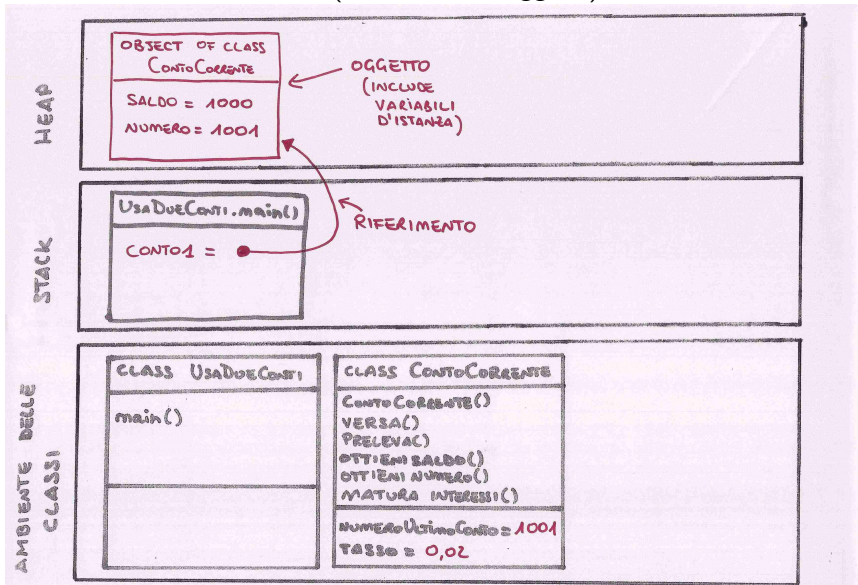 HEAP
OBJECT OF CLASS
ContoCorrente
SALDO = 1000
NUMERO = 1001
OGGETTO
(INCLUDE
VARIABILI
D'ISTANZA)
STACK
UsaDueConti.main()
CONTO1 =
RIFERIMENTO
AMBIENTE DELLE
CLASSI
CLASS UsaDueConti
main()
CLASS ContoCorrente
ContoCorrente()
VERSA()
PRELEVA()
OTTIENI SALDO()
OTTIENI NUMERO()
MATURA INTERESSI()
NUMERO UltimoConto = 1001
TASSO = 0,02